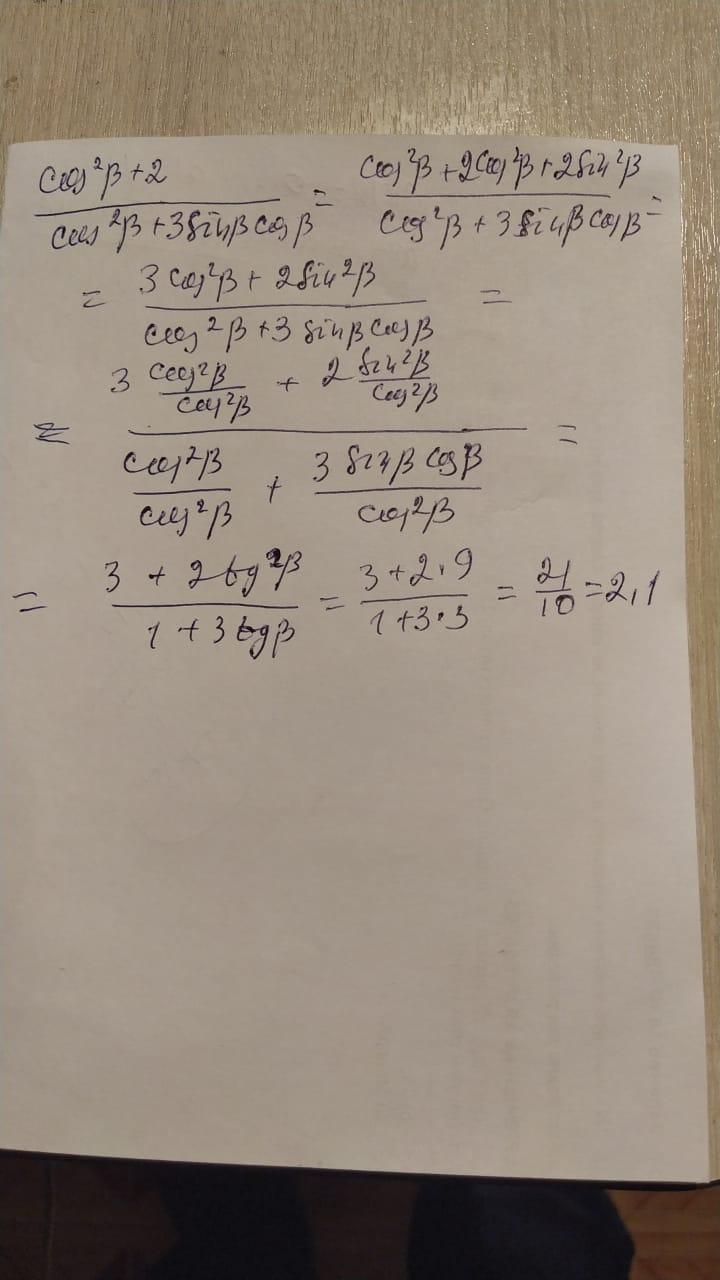 cos²β+2 / cos²β+3sinβcosβ = cos²β+2cos²β+2sin²β / cos²β+3sinβcosβ =
= 3cos²β+2sin²β / cos²β+3sinβcosβ =
= 3 cos²β/cos²β + 2 sin²β/cos²β / cos²β/cos²β + 3sinβcosβ/cos²β =
= 3+2tg²β / 1+3tgβ = 3+2·9 / 1+3·3 = 21/10 = 2,1